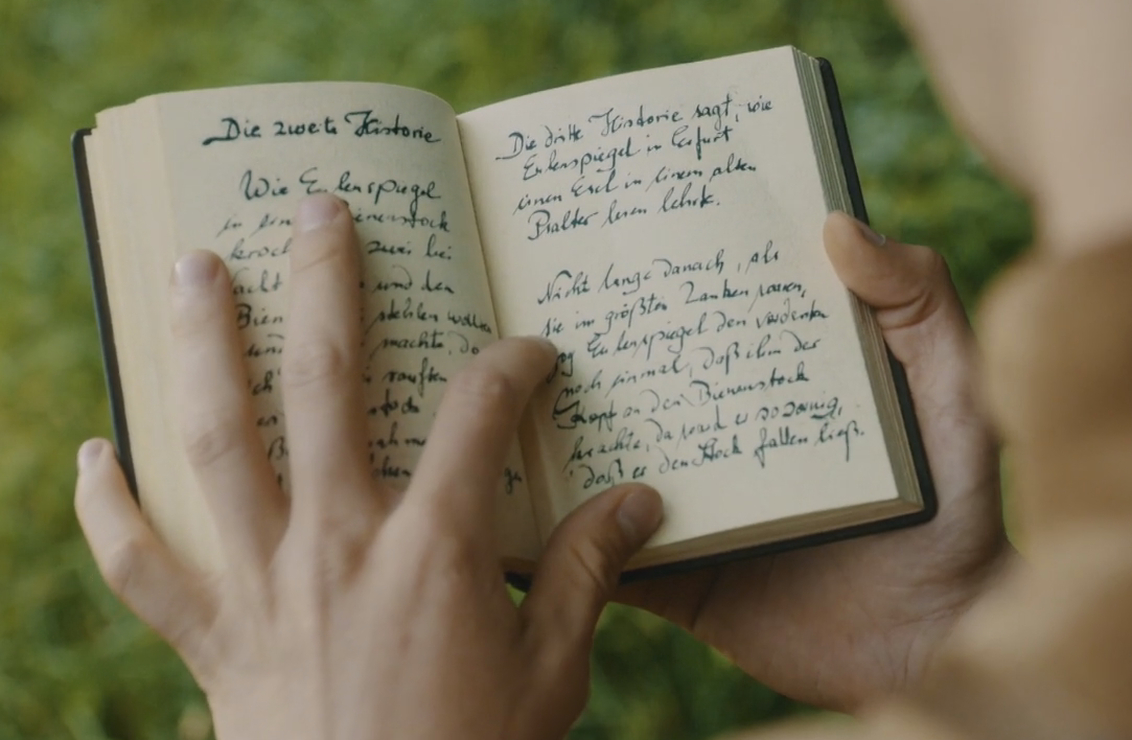 Die zweite Historie
Wie Eulenspiegel
in ein ienenstock
kroch zwei bei
acht und den
Bien stehlen wollten
und machte, da
ich rauften
er
B
Die dritte Historie sagt, wie
Eulenspiegel in Erfurt
einen Esel in einem alten
Psalter lesen lehrte.
Nicht lange danach, als
sie im größten Zanken waren,
zog Eulenspiegel den vordersten
noch einmal, daß ihm der
Kopf an den Bienenstock
krachte, da ward er so zornig,
daß er den Stock fallen ließ.